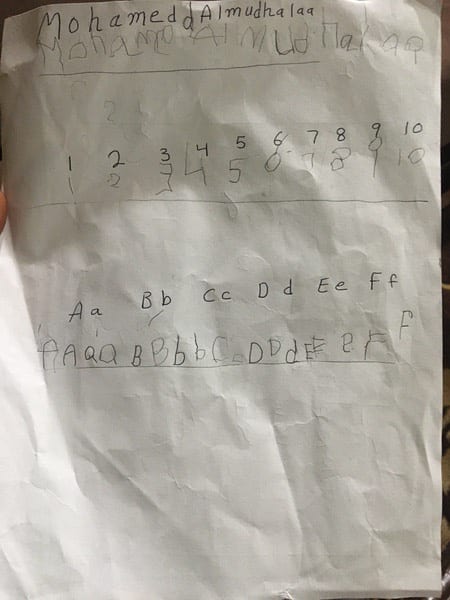 MohameddAlmudhalaa
Mohamed Almudhalaa
2
1 2 3 4 5 6 7 8 9 10
1 2 3 4 5 6 7 8 9 10
Aa Bb Cc Dd Ee Ff
F
A A a a B B b b C c D D d E e F